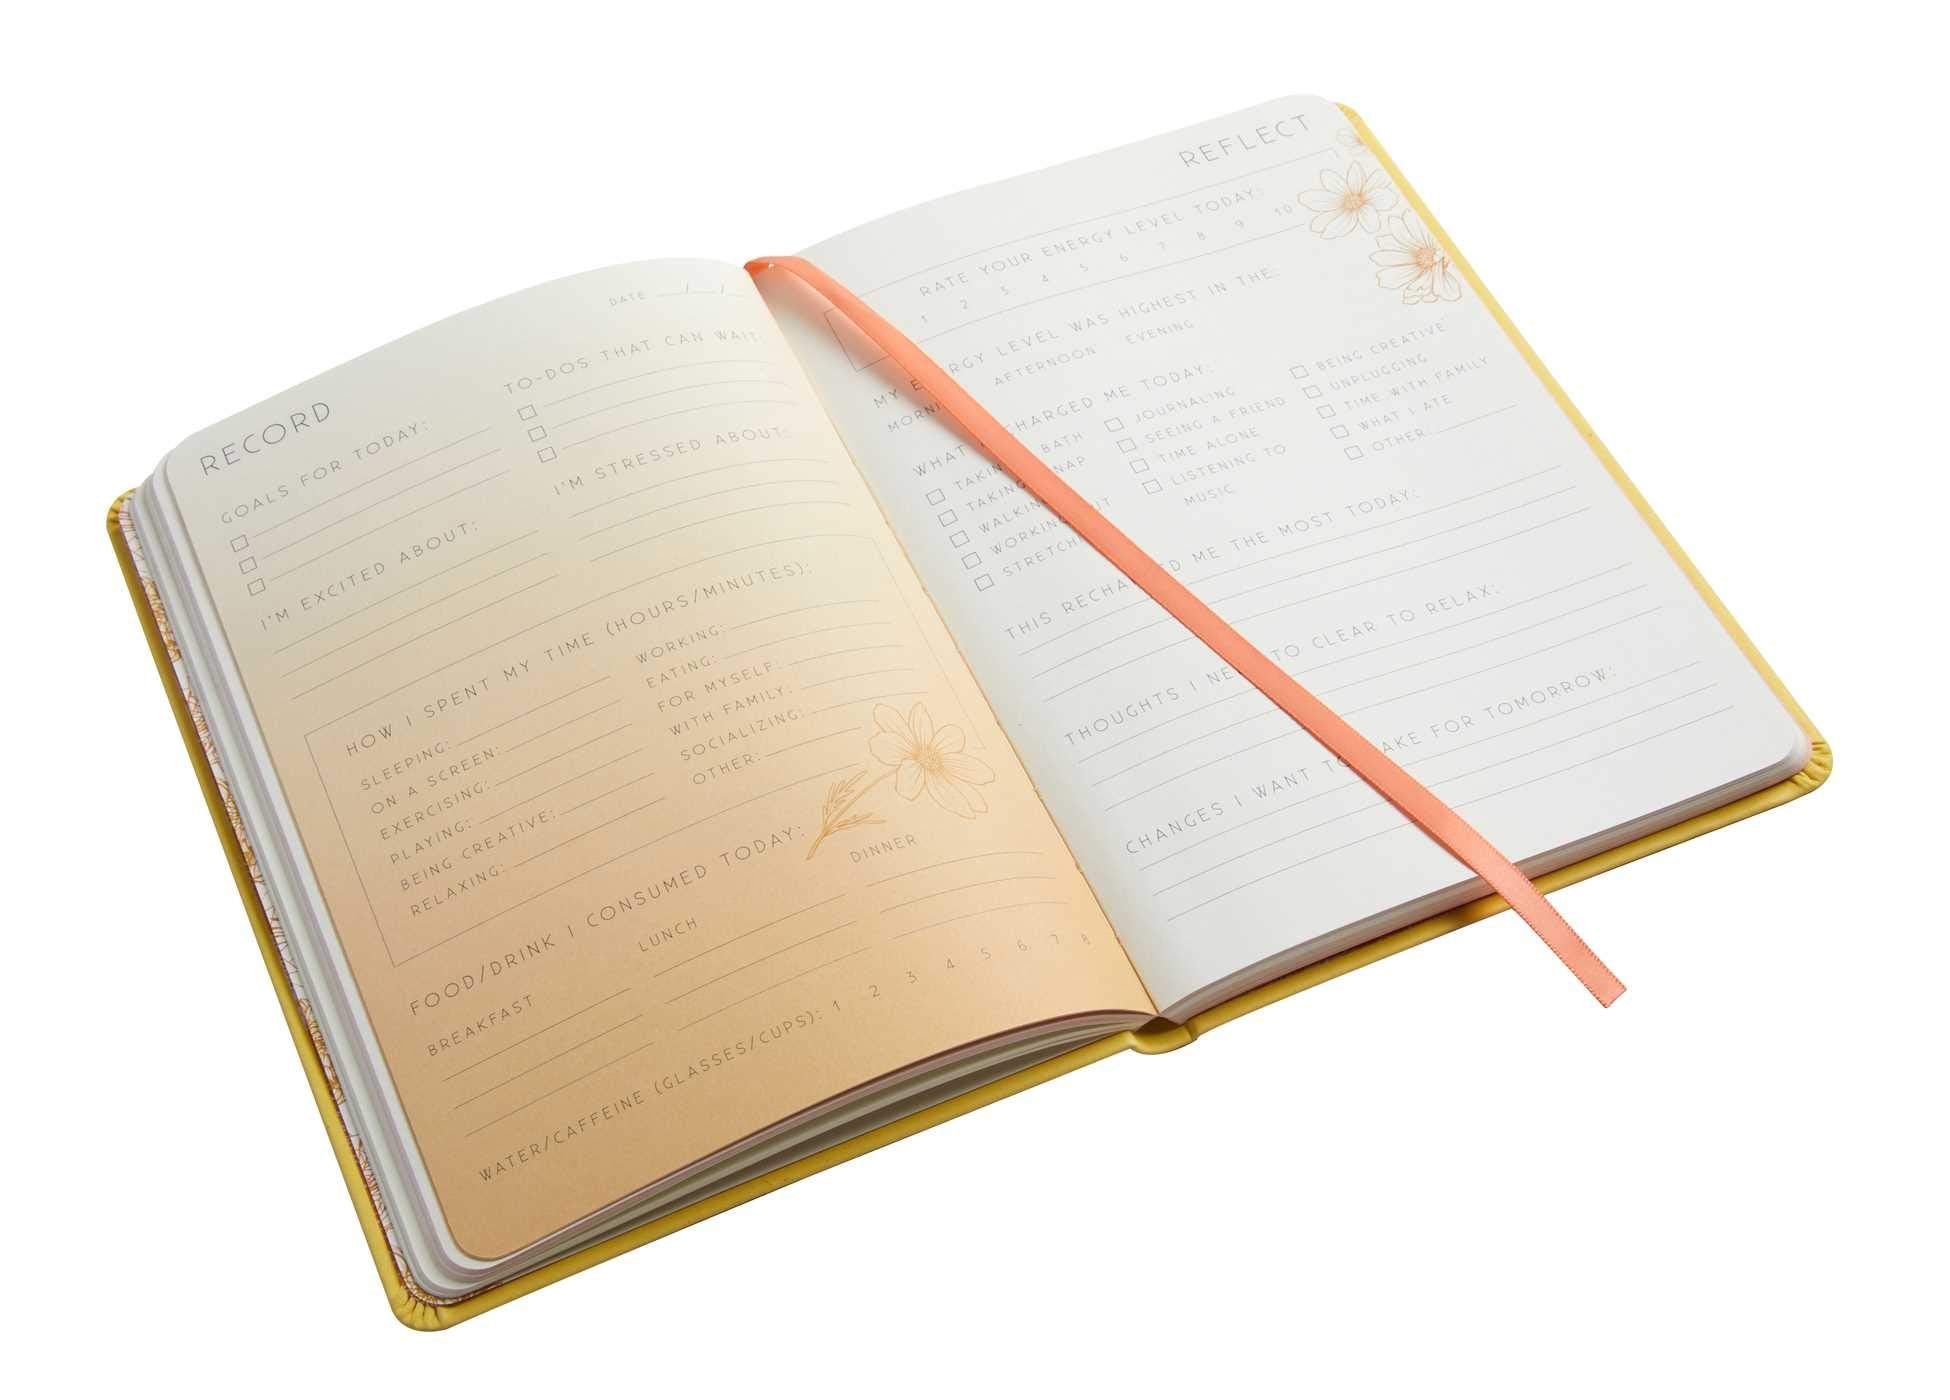 DATE __/__/__
RECORD
GOALS FOR TODAY:
TO-DOS THAT CAN WAIT:
I'M EXCITED ABOUT:
I'M STRESSED ABOUT:
HOW I SPENT MY TIME (HOURS/MINUTES):
SLEEPING:
ON A SCREEN:
EXERCISING:
PLAYING:
BEING CREATIVE:
RELAXING:
WORKING:
EATING:
FOR MYSELF:
WITH FAMILY:
SOCIALIZING:
OTHER:
FOOD/DRINK I CONSUMED TODAY:
BREAKFAST
LUNCH
DINNER
WATER/CAFFEINE (GLASSES/CUPS): 1 2 3 4 5 6 7 8
REFLECT
RATE YOUR ENERGY LEVEL TODAY:
1 2 3 4 5 6 7 8 9 10
MY ENERGY LEVEL WAS HIGHEST IN THE:
AFTERNOON EVENING
WHAT RECHARGED ME TODAY:
BATH
NAP
WALKING
WORKING OUT
STRETCHING
JOURNALING
SEEING A FRIEND
TIME ALONE
LISTENING TO
MUSIC
BEING CREATIVE
UNPLUGGING
TIME WITH FAMILY
WHAT I ATE
OTHER:
THIS RECHARGED ME THE MOST TODAY:
THOUGHTS I NEED TO CLEAR TO RELAX:
CHANGES I WANT TO MAKE FOR TOMORROW: